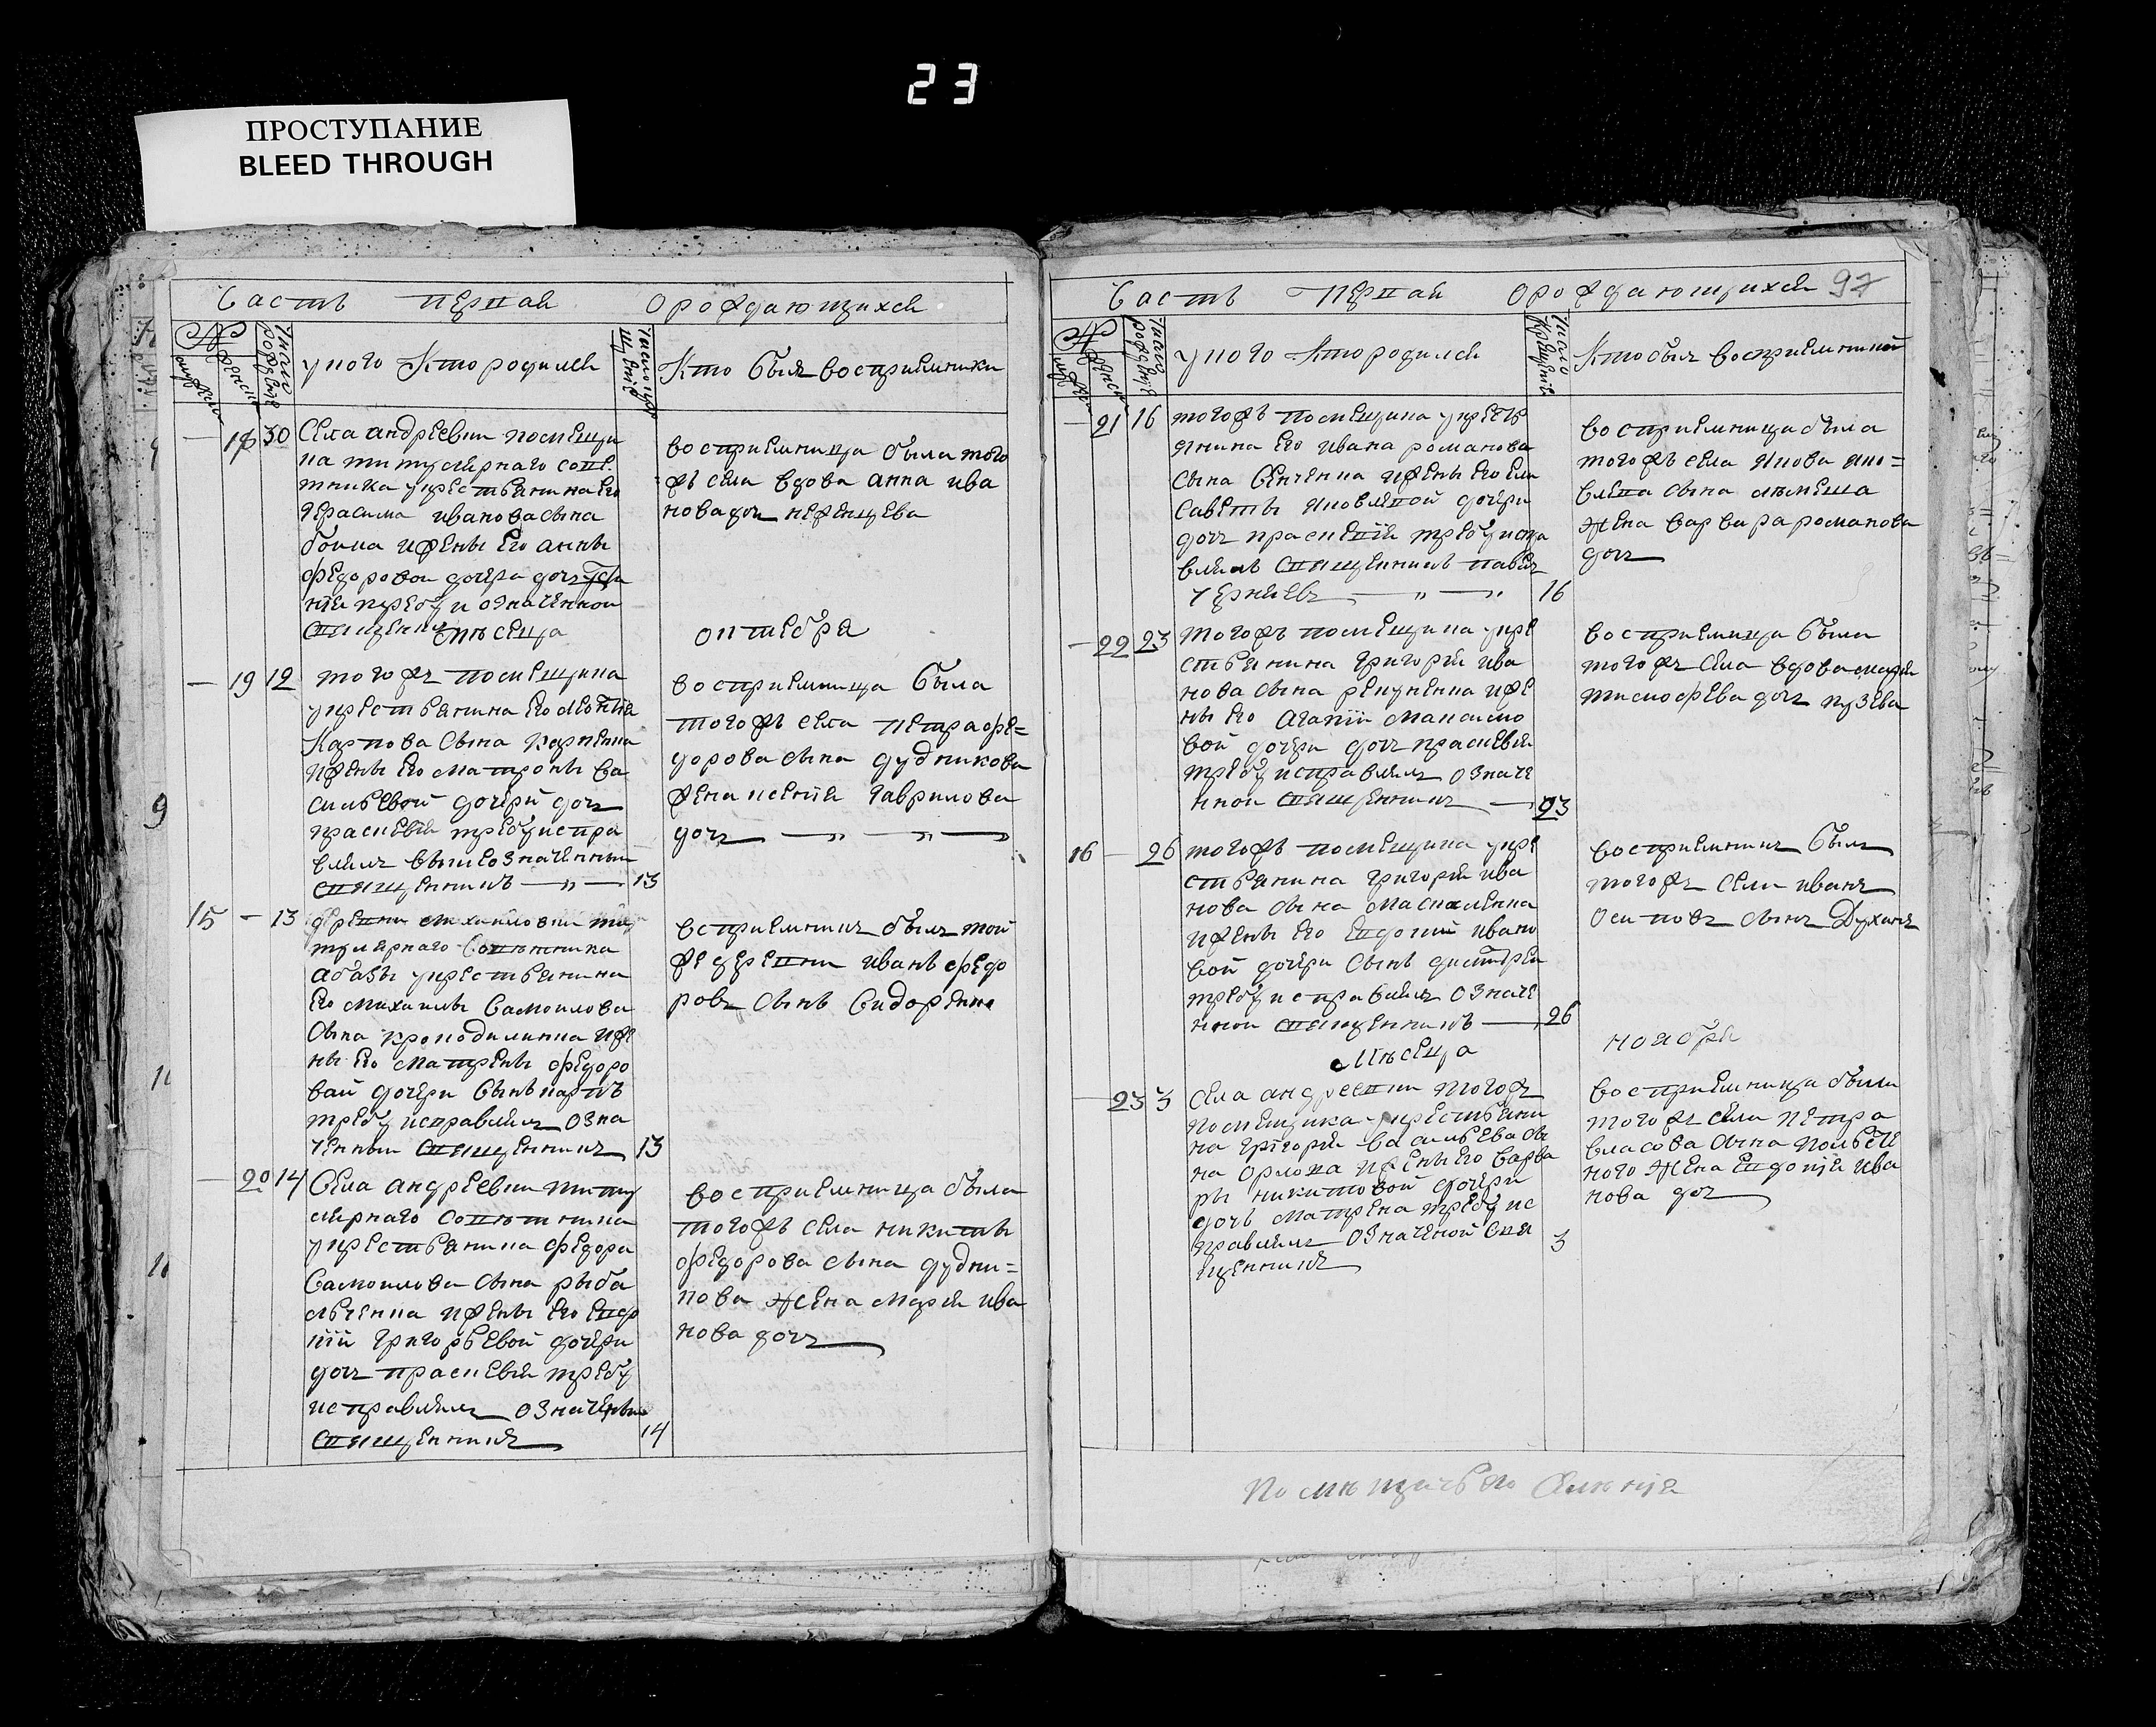 23
ПРОСТУПАНИЕ
BLEED THROUGH
Часть первая о рождающихся
число рождения
у кого кто родился
Кто был восприемники
18 30 Села андреевки помещи
ка титулярного сове
тника у крестьянина его
герасима иванова сына
бойка и жены его анны
федоровой дочери дочь
требу и означенной
священник месяца
восприемница была того
жъ села вдова анна ива
нова дочь
октебра
19 12 тогожъ помещика
у крестьянина его леонтия
Карпова сына карпенка
и жены его матроны ва
сильевой дочери дочь
праскевия требу испра
влялъ вышеозначенный
священникъ 13
восприемница была
тогожъ села петра фе=
дорова сына дудникова
жена ксения гаврилова
дочь
15 13 деревни михайловки ти
тулярного советника
абазы у крестьянина
его михаилы самоилова
сына крокодилинка и же
ны его матрены федоро
вай дочери сынъ
требу исправлялъ озна
ченный священникъ 13
вспрiемникъ былъ той
же деревни иванъ федо
ровъ сынъ сидоренко
20 14 Села андреевки титу
лярного советника
у крестьянина федора
самоилова сына рыба
льченка и жены его евдо
кии григорьевой дочери
дочь праскевия требу
исправлялъ означены
священникъ 14
восприемница была
тогожъ села никиты
федорова сына дудни=
кова жена мария ива
нова дочь
Часть первая о рождающихся 97
число рождения
у кого кто родился
число крещения
Кто был восприемникой
21 16 тогожъ помещика у кресть
янина его ивана романова
сына сенченка и жены его ели
саветы яковлевой дочери
дочь праскевия требу испра
влялъ священникъ павел
черняевъ 16
восприемница была
тогожъ села якова яко=
влева сына
жена варвара романова
дочь
22 23 тогожъ помещика у кре
стьянина григория ива
нова сына и же
ны его агапии максимо
вой дочери дочь праскевия
требу исправлялъ означе
нной священникъ 23
восприемница была
тогожъ села вдова мария
тимофеева дочь
16 26 тогожъ помещика у кре
стьянина григория ива
нова сына маскаленка
и жены его евдокии ивано
вой дочери сынъ дмитрей
требу исправлялъ означе
нной священникъ 26
восприемникъ былъ
тогожъ села иванъ
осиповъ сынъ
месяца
ноября
23 3 села андреевки тогожъ
помещика у крестьяни
на григория васильева сы
на орлова и жены его варва
ры никитовой дочери
дочь матрена требу ис
правлялъ означеной свя
щенникъ 3
восприемница была
тогожъ села петра
власова сына
жена евдокия ива
нова дочь